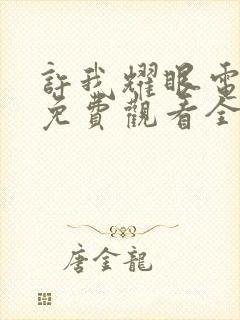 許我耀眼電
免費觀看全
唐金龍